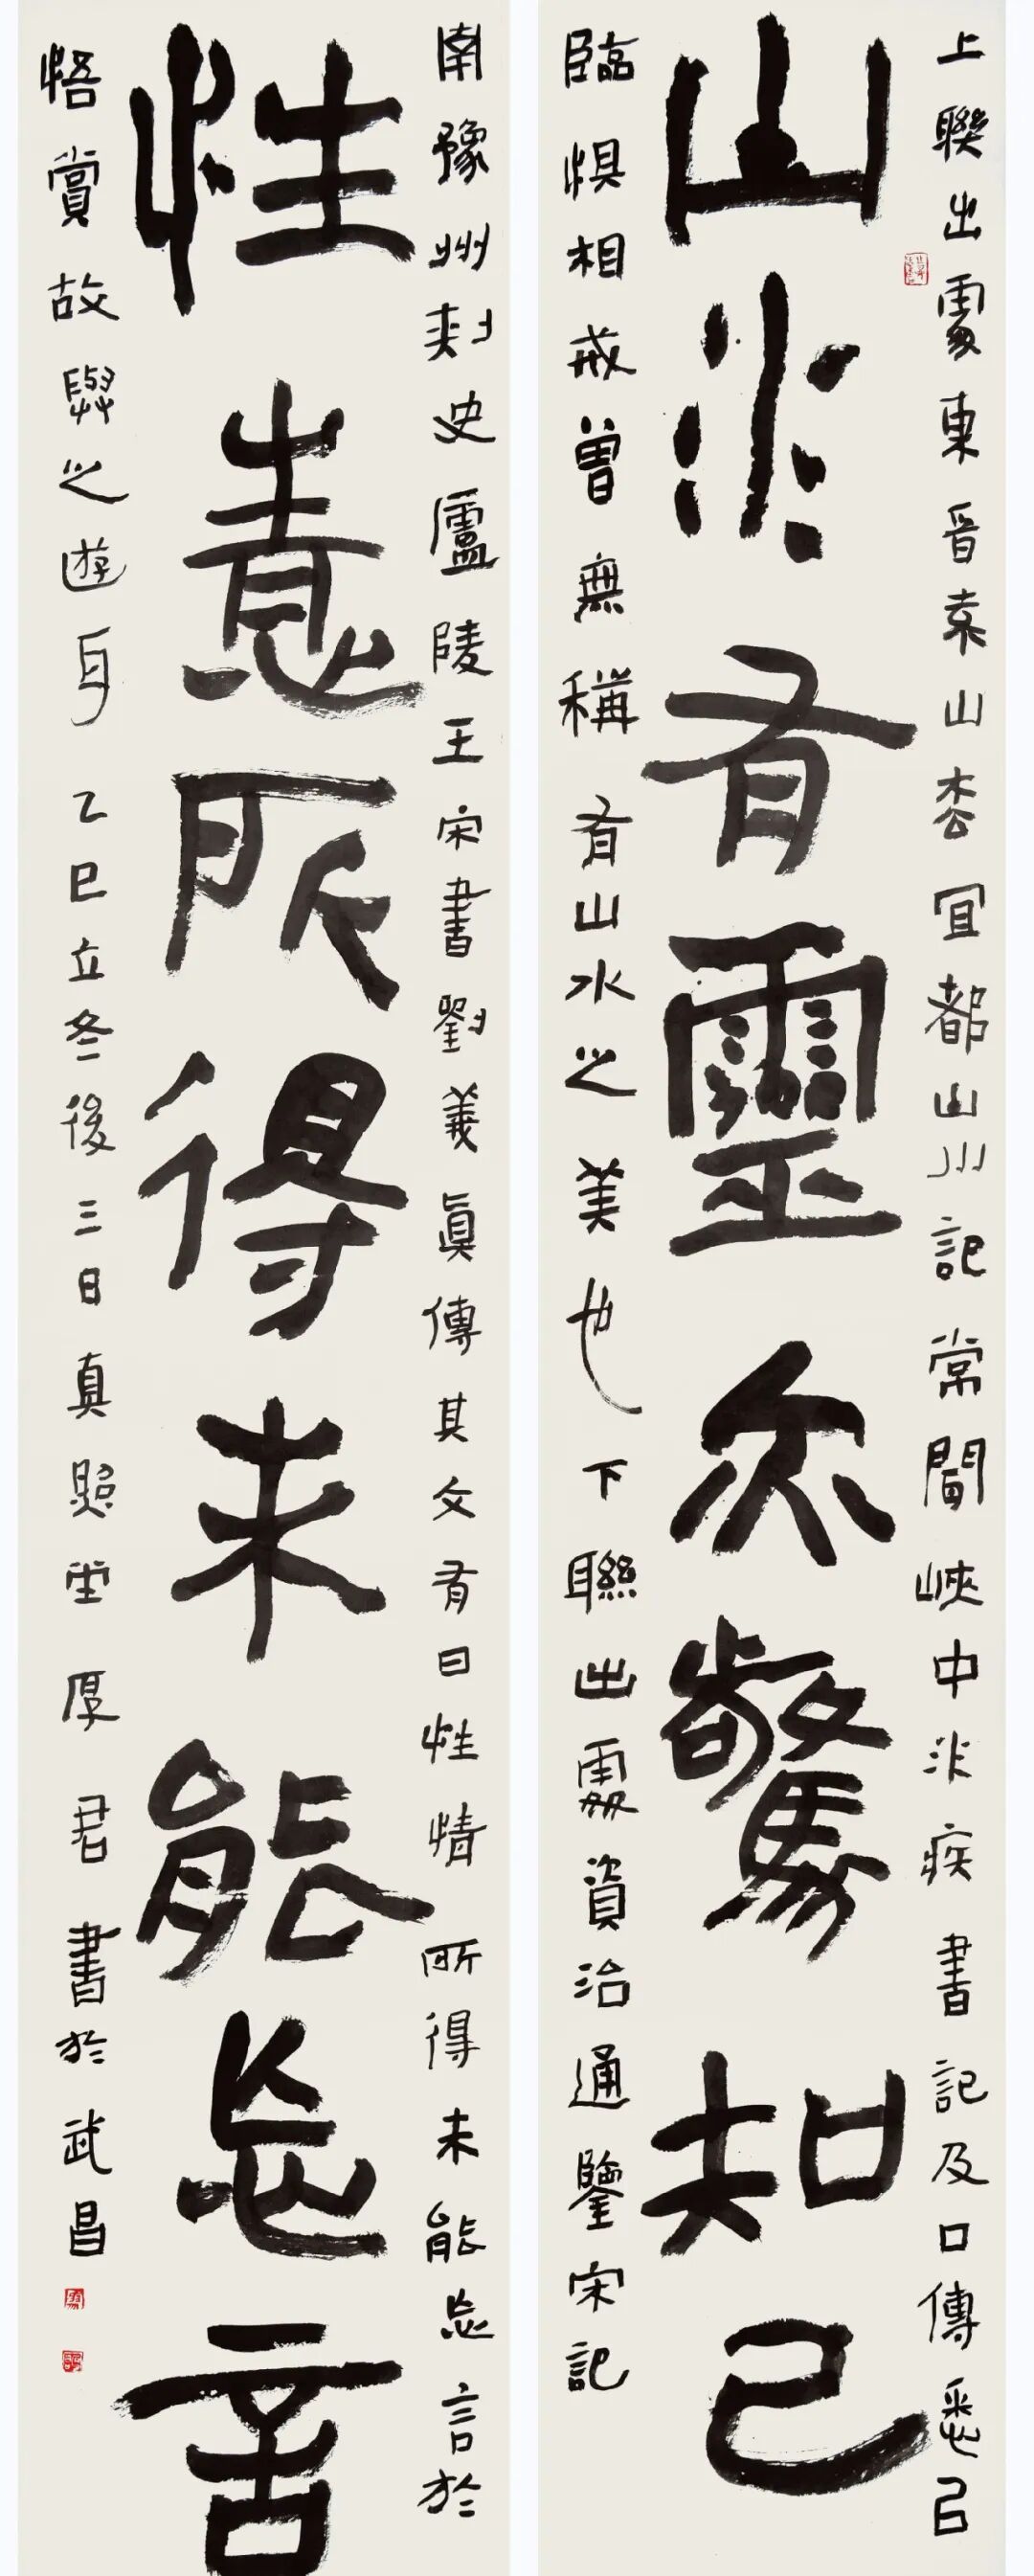 上聯出處東晉袁山松宜都山川記常聞峽中水疾書記及口傳悉以
山水有靈亦驚知己
臨懼相戒曾無稱有山水之美也下聯出處資治通鑒宋記
南豫州刺史廬陵王宋書劉義真傳其文有曰性情所得未能忘言於
性情所得未能忘言
悟賞故與之遊耳乙巳立冬後三日真照堂厚君書於武昌